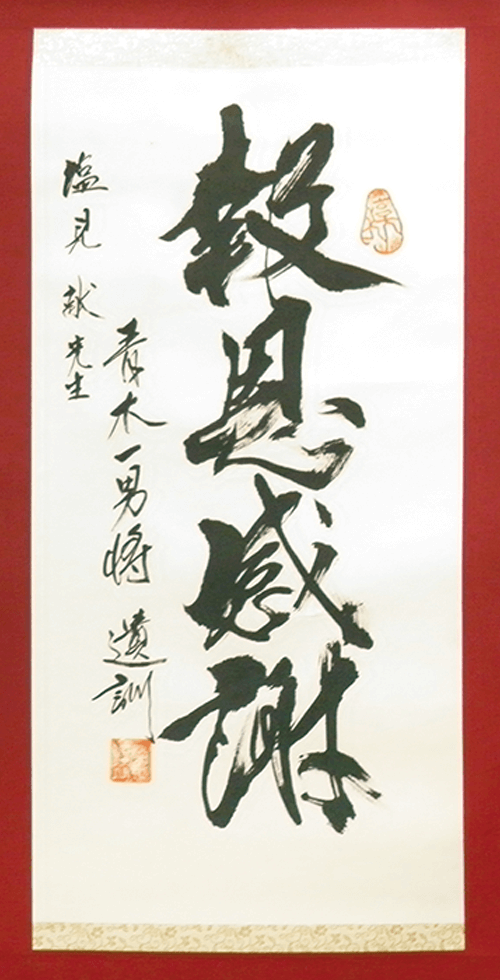 報恩感謝
青木一男将 遺訓
塩見 献先生